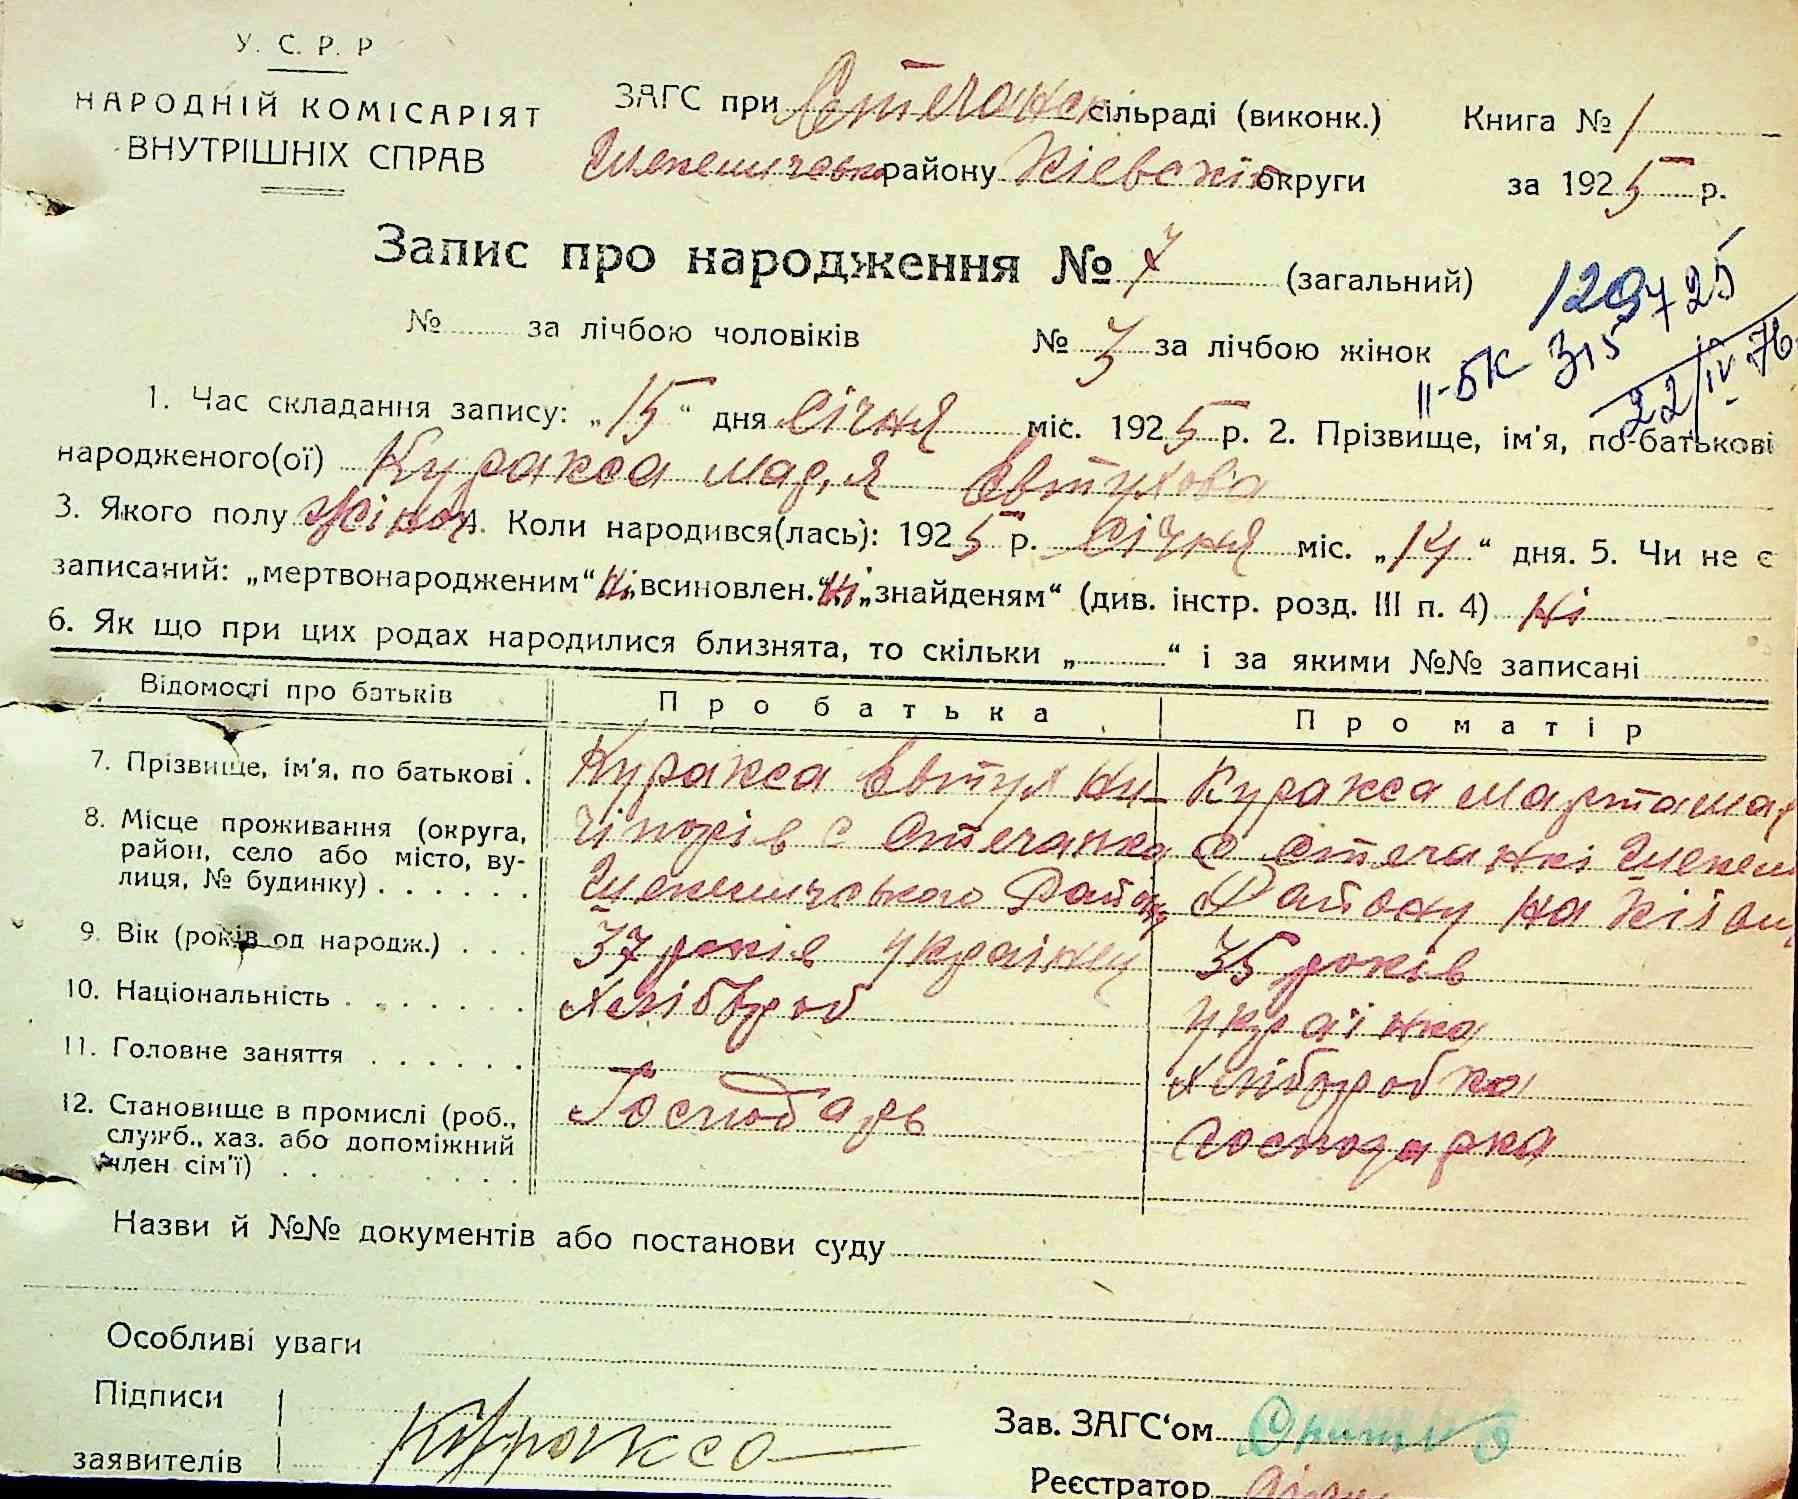 У. С. Р. Р
НАРОДНІЙ КОМІСАРІЯТ
ВНУТРІШНІХ СПРАВ
ЗАГС при Стечанск сільраді (виконк.) Книга № 1
району Кієвскій округи за 1925 р.
Запис про народження № 7 (загальний)
№ за лічбою чоловіків № 3 за лічбою жінок
129725
ІІ-БК 315
22/IV 76
1. Час складання запису: „15“ дня Січня міс. 1925 р. 2. Прізвище, ім'я, по-батькові
народженого(ої) Куракса Марія Євтухова
3. Якого полу Жіноч. Коли народився(лась): 1925 р. Січня міс. „14“ дня. 5. Чи не є
записаний: „мертвонародженим“ Ні, „всиновлен.“ Ні „знайденям“ (див. інстр. розд. III п. 4) Ні
6. Як що при цих родах народилися близнята, то скільки „ “ і за якими №№ записані
Відомості про батьків Про батька Про матір
7. Прізвище, ім'я, по батькові . Куракса Євтух Ни- Куракса Марта Мар
8. Місце проживання (округа, район, село або місто, вулиця, № будинку) . . . . . . чіпорів с Стечанка Району с Стечанкі Району
9. Вік (років од народж.) . . . 37 років українец 35 років
10. Національність . . . . . . . Хлібороб українка
11. Головне заняття . . . . . . Хліборобка
12. Становище в промислі (роб., служб., хаз. або допоміжний член сім'ї) . . . . . . . Господарь Господарка
Назви й №№ документів або постанови суду
Особливі уваги
Підписи
заявителів Куракса
Зав. ЗАГС‘ом
Реєстратор